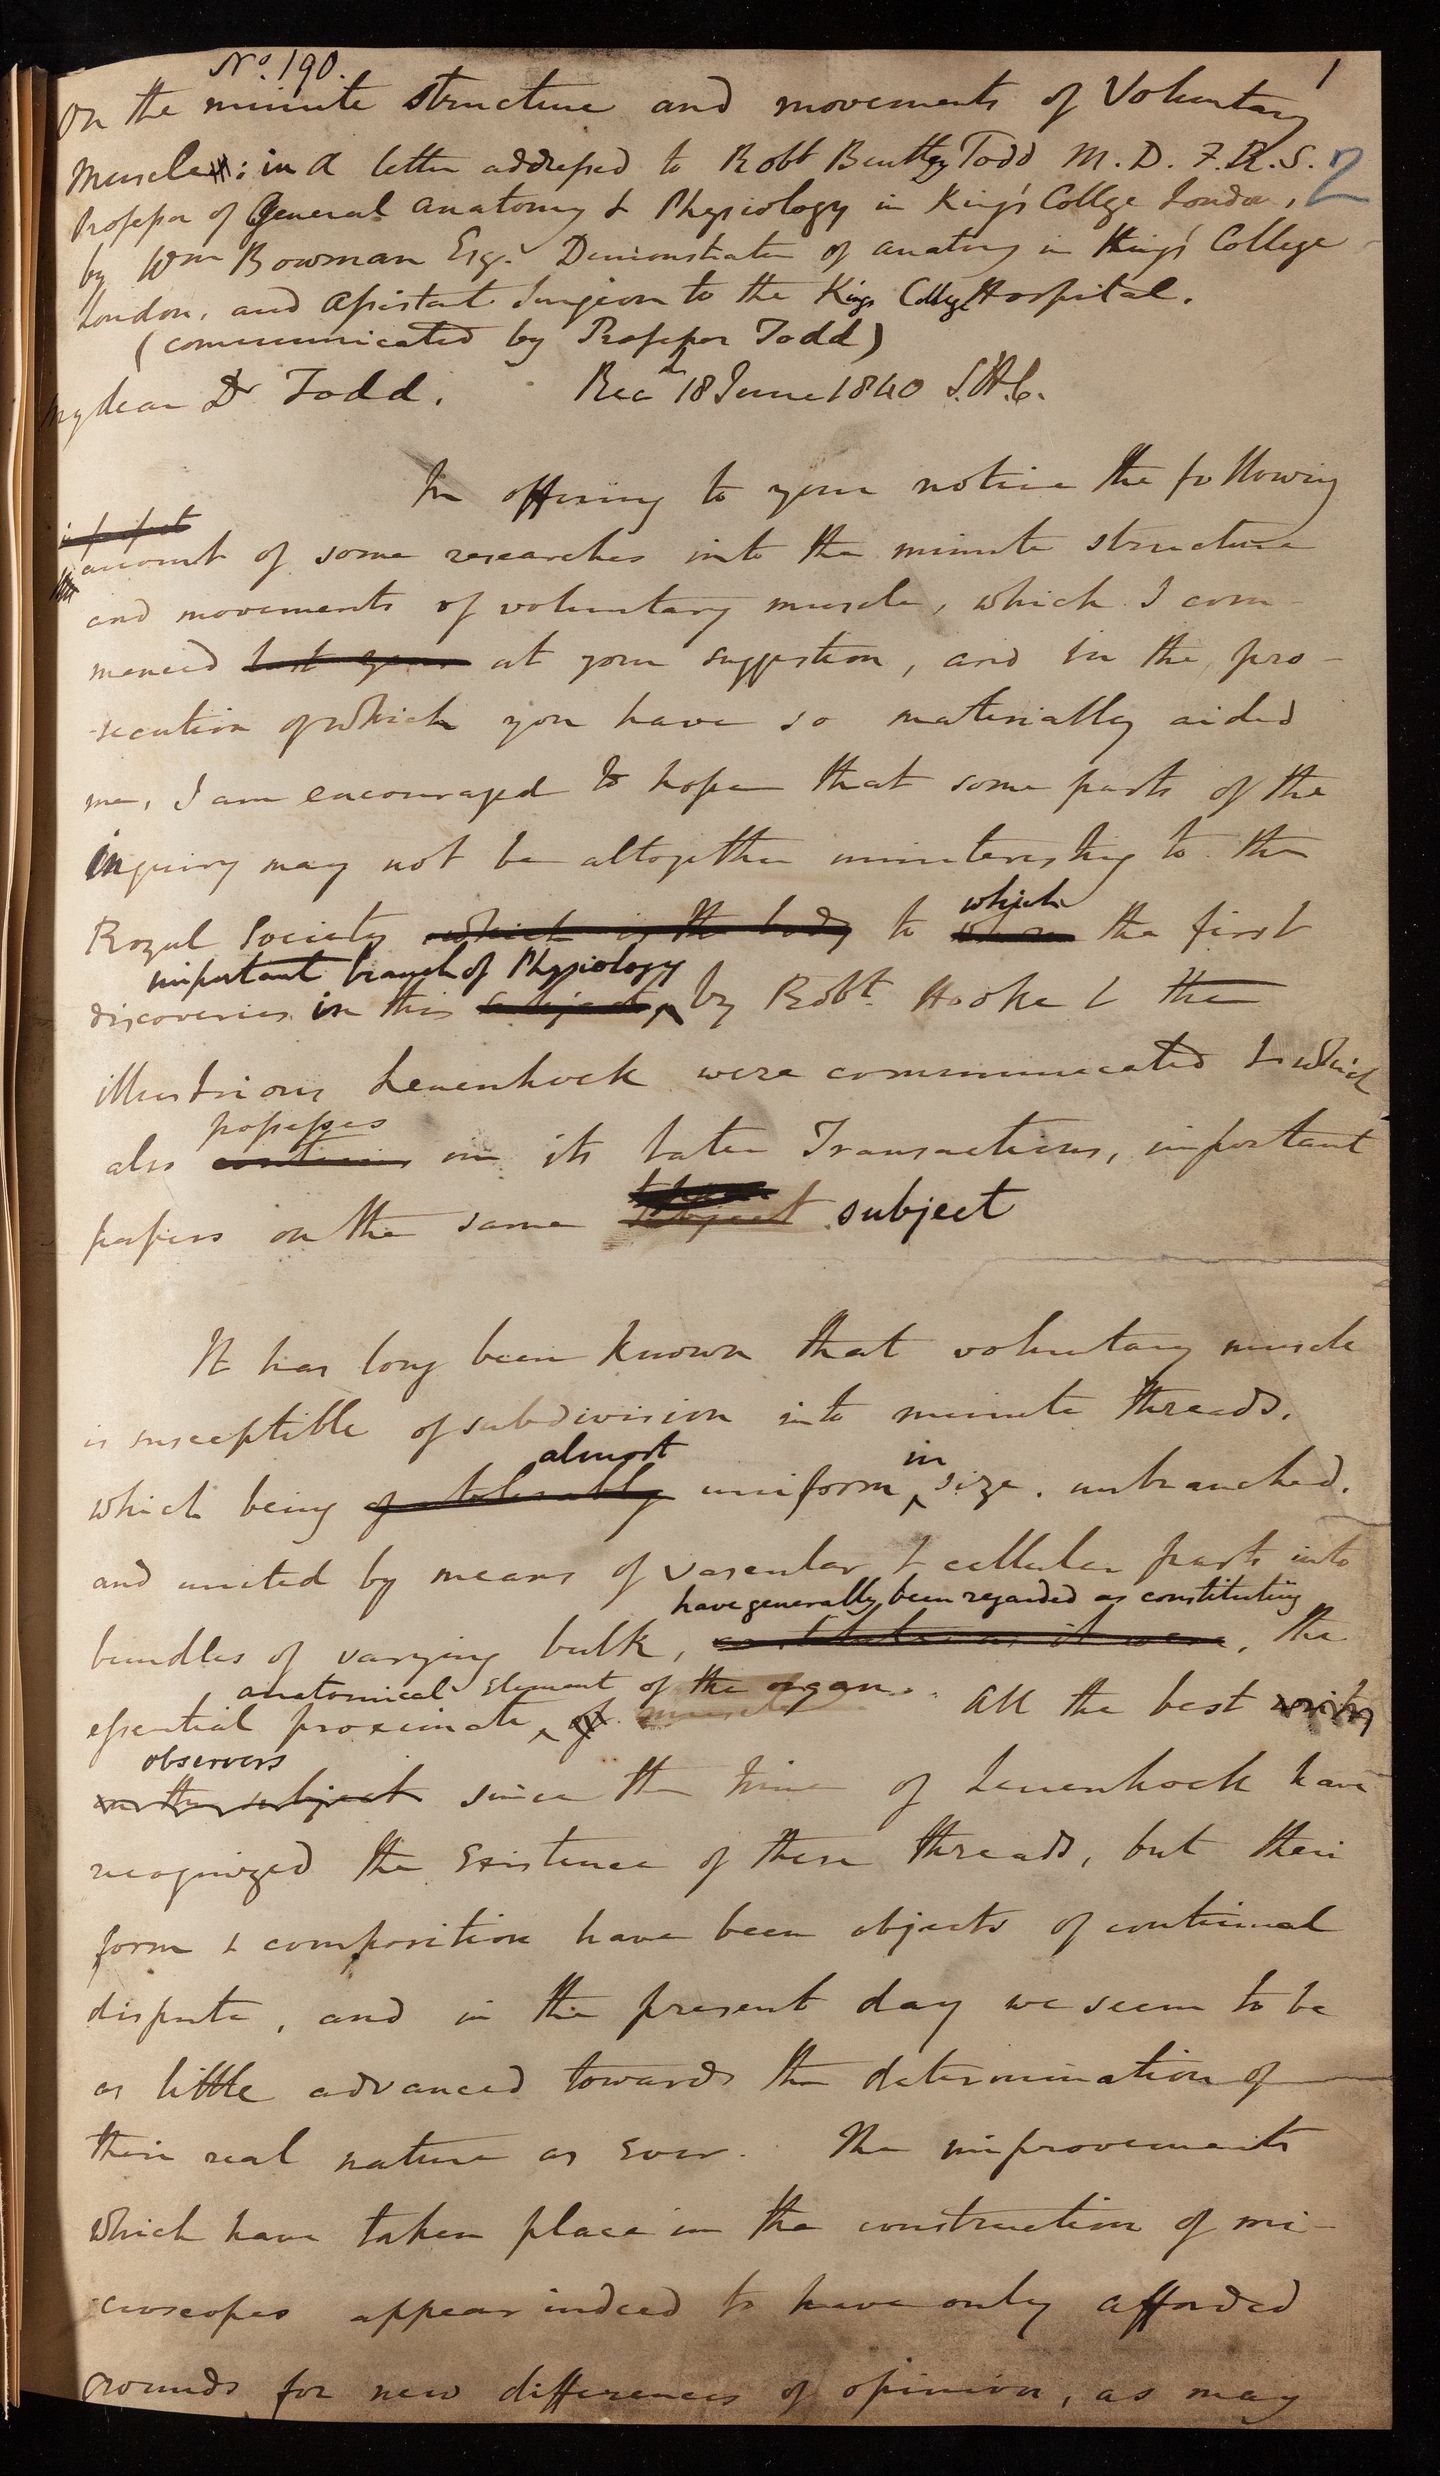 No. 190.
1
On the minute structure and movements of Voluntary
Muscle: in a letter addressed to Robt Bentley Todd M.D. F.R.S.
2
Professor of General Anatomy & Physiology in King's College London,
by Wm Bowman Esq. Demonstrator of anatomy in King's College
London, and Assistant Surgeon to the Kings College Hospital.
(communicated by Professor Todd)
My dear Dr Todd. Recd 18 June 1840 S.H.C.
In offering to your notice the following
account of some researches into the minute structure
and movements of voluntary muscle, which I com-
menced last year at your suggestion, and in the pro-
secution of which you have so materially aided
me, I am encouraged to hope that some parts of the
inquiry may not be altogether uninteresting to the
which
Royal Society which is the body to whom the first
important branch of Physiology
discoveries in this subject, by Robt Hooke & the
illustrious Leuenhoek were communicated & which
possesses
also contains in its later Transactions, important
papers on the same subject subject
It has long been known that voluntary muscle
is susceptible of subdivision into minute threads.
almost in
which being of tolerably uniform size, unbranched,
and united by means of vascular & cellular parts into
have generally been regarded as constituting
bundles of varying bulk, constitute as it were, the
anatomical element of the organ.
essential proximate of muscle All the best writers
observers
on the subject since the time of Leuenhoek have
recognized the existence of these threads, but their
form & composition have been objects of continual
dispute, and in the present day we seem to be
as little advanced towards the determination of
their real nature as ever. The improvements
which have taken place in the construction of mi-
croscopes appear indeed to have only afforded
grounds for new differences of opinion, as may